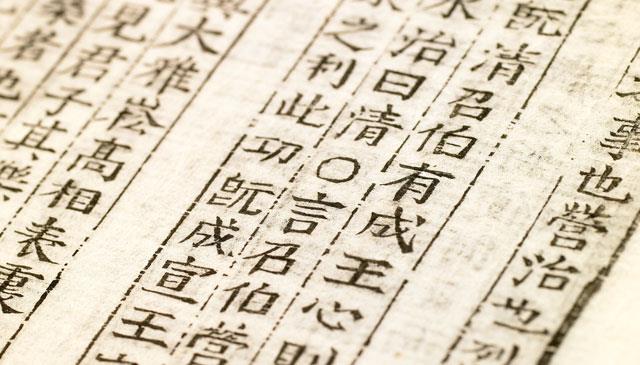 事也營治也
旣清召伯有成王心則
水治曰清○言召伯營
之利此功旣成宣王
大雅崧高相表裏
見君子其樂
者也